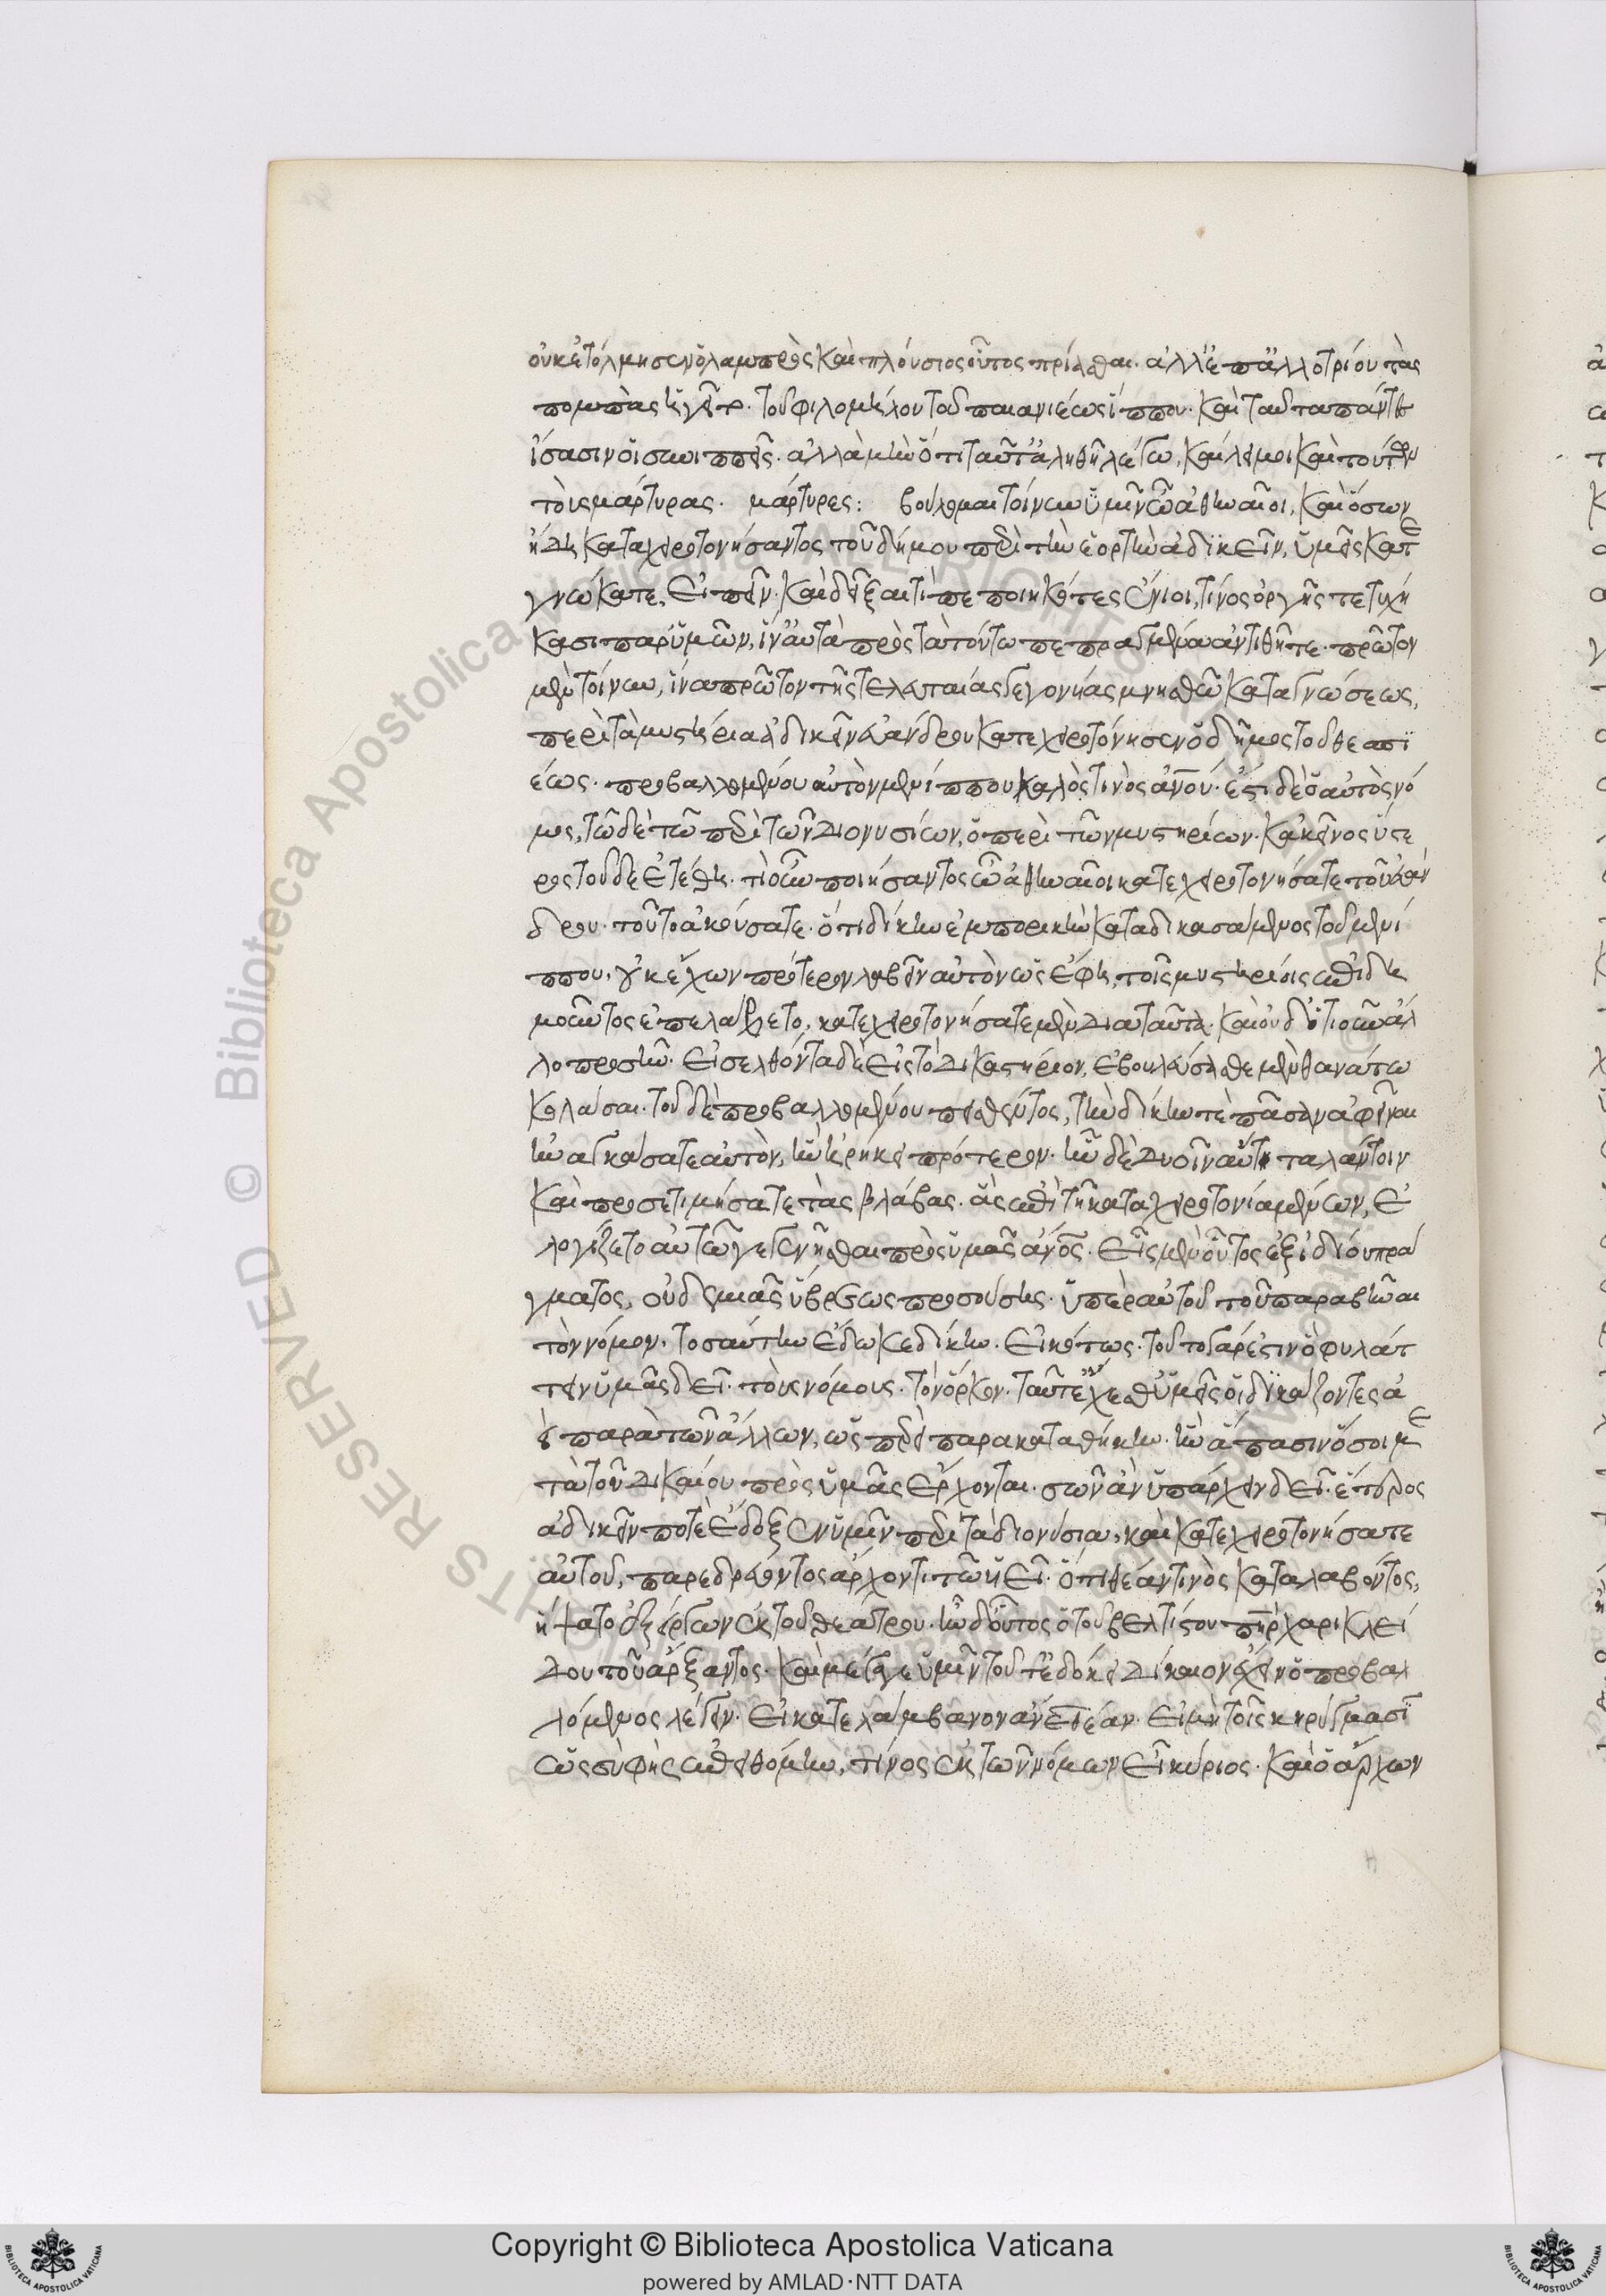 οὐκ ἐτόλμησεν ὁ λαμπρὸς καὶ πλούσιος οὗτος πρίασθαι. ἀλλ' ἐπ' ἀλλοτρίου τὰς
πομπὰς ἡγεῖτο. τοῦ φιλομήλου τοῦ παιανιέως ἵππου. καὶ ταῦτα πάντες
ἴσασιν οἱ συνιππεῖς. ἀλλὰ μὴν ὅτι ταῦτ' ἀληθῆ λέγω, κάλει μοι καὶ τούτων
τοὺς μάρτυρας. μάρτυρες: βούλομαι τοίνυν ὑμῖν ὦ ἀθηναῖοι, καὶ ὅσων
ἤδη καταχειροτονήσαντος τοῦ δήμου περὶ τὴν ἑορτὴν ἀδικεῖν, ὑμεῖς κατε
γνώκατε, εἰπεῖν. καὶ δεῖξαι τί πεποιηκότες ἔνιοι, τίνος ὀργῆς τετυχή
κασι παρ' ὑμῶν, ἵν' αὐτὰ πρὸς τὰ τούτω πεπραγμένα ἀντιθῆτε. πρῶτον
μὲν τοίνυν, ἵνα πρῶτον τῆς τελευταίας γεγονυίας μνησθῶ καταγνώσεως,
περὶ τὰ μυστήρια ἀδικεῖν εὐάνδρου κατεχειροτόνησεν ὁ δῆμος τοῦ θεσπι
έως. προβαλλομένου αὐτὸν μενίππου καρός τινὸς ἀνου. ἔστι δὲ ὁ αὐτὸς νό
μος, τῶδε τῶ περὶ τῶν διονυσίων, ὁ περὶ τῶν μυστηρίων. κἀκεῖνος ὕστε
ρος τοῦδε ἐτέθη. τί οὖν ποιήσαντος ὦ ἀθηναῖοι κατεχειροτονήσατε τοῦ εὐάν
δρου. τοῦτο ἀκούσατε. ὅτι δίκην ἐμπορικὴν καταδικασάμενος τοῦ μενί
ππου, οὐκ ἔχων πρότερον λαβεῖν αὐτὸν ὡς ἔφη, τοῖς μυστηρίοις ἐπιδη
μοῦντος ἐπελάβετο. κατεχειροτονήσατε μὲν διὰ ταῦτα. καὶ οὐδ' ὁτιοῦν ἄλ
λο προσῆν. εἰσελθόντα δὲ εἰς τὸ δικαστήριον, ἐβούλεσθε μὲν θανάτω
κολάσαι. τοῦ δὲ προβαλλομένου πεισθέντος, τὴν δίκην τε πᾶσαν ἀφεῖναι
ἠναγκάσατε αὐτὸν, ἣν ᾑρήκει πρότερον. ἦν δὲ δυοῖν αὕτη ταλάντοιν
καὶ προσετιμήσατε τὰς βλάβας. ἃς ἐπὶ τῆ καταχειροτονία μένων, ἐ
λογίζετο αὐτῶ γεγενῆσθαι πρὸς ὑμᾶς ἄνος. εἷς μὲν οὗτος ἐξ ἰδίου πρά
γματος, οὐδεμιᾶς ὕβρεως προσούσης. ὑπὲρ αὐτοῦ τοῦ παραβῆναι
τὸν νόμον. τοσαύτην ἔδωκε δίκην. εἰκότως. τοῦτο γάρ ἐστιν ὃ φυλάτ
τειν ὑμᾶς δεῖ. τοὺς νόμους. τὸν ὅρκον. ταῦτ' ἔχεθ' ὑμεῖς οἱ δικάζοντες ἀ
εὶ παρὰ τῶν ἄλλων, ὡσπερεὶ παρακαταθήκην. ἣν ἅπασιν ὅσοι με
τὰ τοῦ δικαίου πρὸς ὑμᾶς ἔρχονται. σῶν ἂν ὑπάρχειν δεῖ. ἕτερος
ἀδικεῖν ποτὲ ἔδοξεν ὑμῖν περὶ τὰ διονύσια, καὶ κατεχειροτονήσατε
αὐτοῦ, παρεδρεύοντος ἄρχοντι τῶ υἱεῖ. ὅτι θέαν τινὸς καταλαβόντος,
ἥψατο ἐξείργων ἐκ τοῦ θεάτρου. ἦν δ' οὗτος ὁ τοῦ βελτίστου πηρ χαρικλεί
δου τοῦ ἄρξαντος. καὶ μέγα γε ὑμῖν τοῦτ' ἐδόκει δίκαιον ἔχειν ὁ προβαλ
λόμενος λέγειν. εἰ κατελάμβανον ἄνε θέαν. εἰ μὴ τοῖς κηρύγμασιν
ὡς σὺ φὴς ἐπειθόμην, τίνος ἐκ τῶν νόμων εἶ κύριος. καὶ ὁ ἄρχων
Copyright © Biblioteca Apostolica Vaticana
powered by AMLAD·NTT DATA